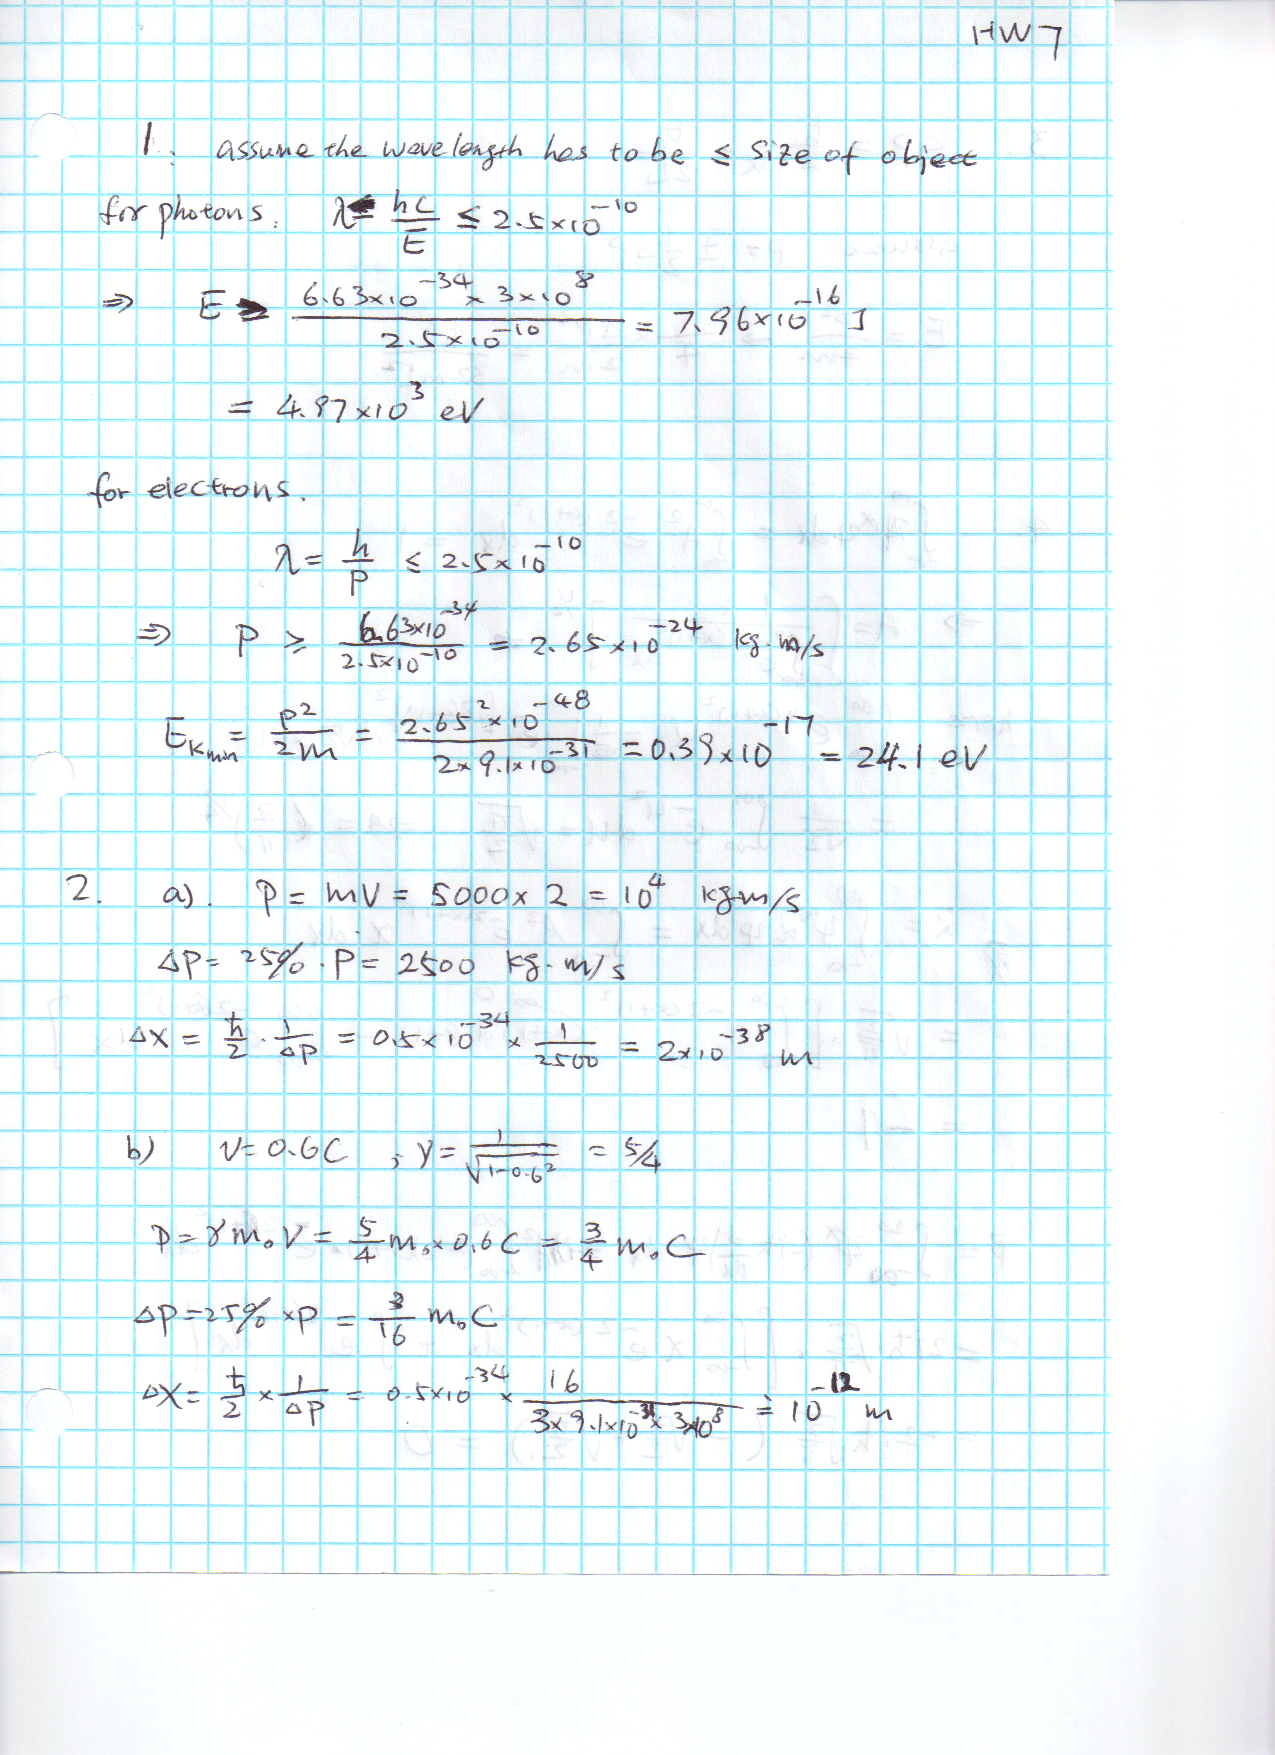 HW7
1. assume the wavelength has to be ≤ size of object
for photons. λ= hc/E ≤ 2.5×10^-10
⇒ E ≥ (6.63×10^-34 × 3×10^8)/(2.5×10^-10) = 7.96×10^-16 J
= 4.97×10^3 eV
for electrons.
λ = h/P ≤ 2.5×10^-10
⇒ P ≥ (6.63×10^-34)/(2.5×10^-10) = 2.65×10^-24 kg·m/s
E_Kmin = P^2/2m = (2.65^2×10^-48)/(2×9.1×10^-31) = 0.39×10^-17 = 24.1 eV
2. a). P = mV = 5000×2 = 10^4 kgm/s
ΔP = 25%·P = 2500 kg·m/s
ΔX = ħ/2 · 1/ΔP = 0.5×10^-34 × 1/2500 = 2×10^-38 m
b) V=0.6C , γ = 1/√(1-0.6^2) = 5/4
P = γm₀V = 5/4 m₀×0.6C = 3/4 m₀C
ΔP=25%×P = 3/16 m₀C
ΔX = ħ/2 × 1/ΔP = 0.5×10^-34 × 16/(3×9.1×10^-31×3×10^8) = 10^-12 m